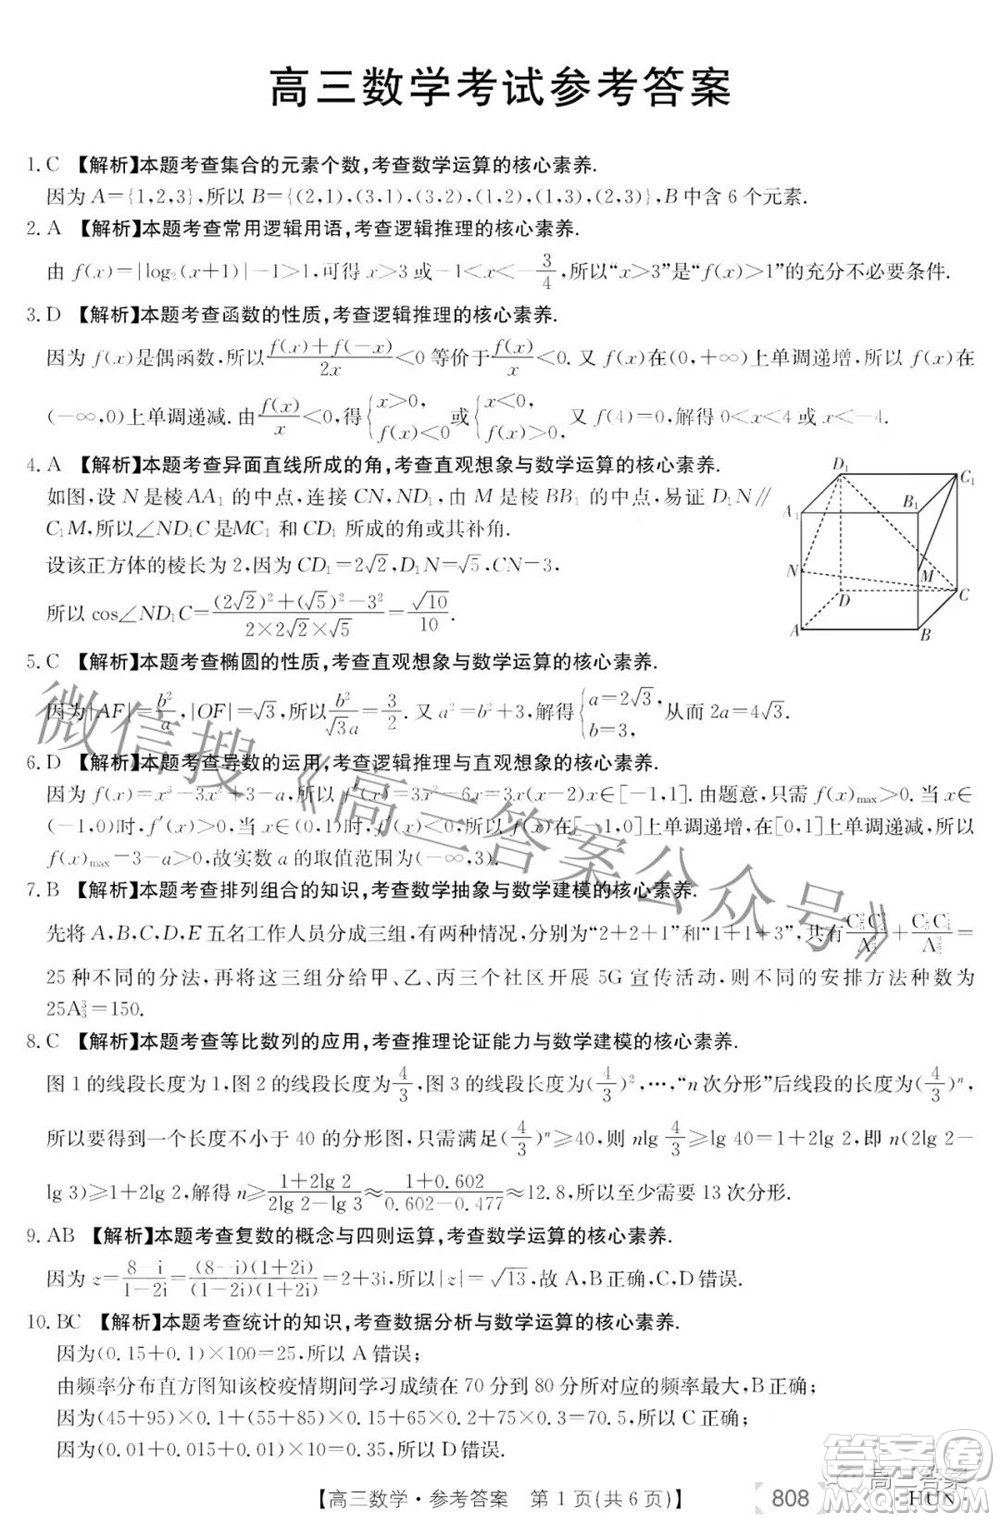 高三数学考试参考答案
1. C 【解析】本题考查集合的元素个数,考查数学运算的核心素养.
因为 A={1,2,3},所以 B={(2,1),(3,1),(3,2),(1,2),(1,3),(2,3)},B 中含 6 个元素.
2. A 【解析】本题考查常用逻辑用语,考查逻辑推理的核心素养.
由 f(x)=|log₂(x+1)|-1>1,可得 x>3 或-1<x<-3/4,所以“x>3”是“f(x)>1”的充分不必要条件.
3. D 【解析】本题考查函数的性质,考查逻辑推理的核心素养.
因为 f(x)是偶函数,所以 (f(x)+f(-x))/2x<0 等价于 f(x)/x<0. 又 f(x)在(0,+∞)上单调递增,所以 f(x)在
(-∞,0)上单调递减. 由 f(x)/x<0,得{x>0, f(x)<0 或{x<0, f(x)>0. 又 f(4)=0,解得 0<x<4 或 x<-4.
4. A 【解析】本题考查异面直线所成的角,考查直观想象与数学运算的核心素养.
如图,设 N 是棱 AA₁ 的中点,连接 CN,ND₁,由 M 是棱 BB₁ 的中点,易证 D₁N∥
C₁M,所以∠ND₁C 是MC₁ 和 CD₁ 所成的角或其补角.
设该正方体的棱长为 2,因为 CD₁=2√2,D₁N=√5,CN=3,
所以 cos∠ND₁C=((2√2)²+(√5)²-3²)/(2×2√2×√5)=√10/10.
D₁ C₁
A₁ B₁
N M
D C
A B
5. C 【解析】本题考查椭圆的性质,考查直观想象与数学运算的核心素养.
因为|AF|=b²/a,|OF|=√3,所以 b²/(√3a)=√3/2. 又 a²=b²+3,解得{a=2√3, b=3, 从而 2a=4√3.
6. D 【解析】本题考查导数的运用,考查逻辑推理与直观想象的核心素养.
因为 f(x)=x³-3x²+3-a,所以 f′(x)=3x²-6x=3x(x-2),x∈[-1,1]. 由题意,只需 f(x)max>0. 当 x∈
(-1,0)时,f′(x)>0,当 x∈(0,1)时,f′(x)<0,所以 f(x)在[-1,0]上单调递增,在[0,1]上单调递减,所以
f(x)max=3-a>0,故实数 a 的取值范围为(-∞,3).
7. B 【解析】本题考查排列组合的知识,考查数学抽象与数学建模的核心素养.
先将 A,B,C,D,E 五名工作人员分成三组,有两种情况,分别为“2+2+1”和“1+1+3”,共有 C₅²C₃²/A₂²+C₅¹C₄¹/A₂²=
25 种不同的分法,再将这三组分给甲、乙、丙三个社区开展 5G 宣传活动,则不同的安排方法种数为
25A₃³=150.
8. C 【解析】本题考查等比数列的应用,考查推理论证能力与数学建模的核心素养.
图 1 的线段长度为 1,图 2 的线段长度为 4/3,图 3 的线段长度为(4/3)²,…,“n 次分形”后线段的长度为(4/3)ⁿ,
所以要得到一个长度不小于 40 的分形图,只需满足(4/3)ⁿ≥40,则 nlg 4/3≥lg 40=1+2lg 2,即 n(2lg 2-
lg 3)≥1+2lg 2,解得 n≥(1+2lg 2)/(2lg 2-lg 3)≈(1+0.602)/(0.602-0.477)≈12.8,所以至少需要 13 次分形.
9. AB 【解析】本题考查复数的概念与四则运算,考查数学运算的核心素养.
因为 z=(8-i)/(1-2i)=(8-i)(1+2i)/(1-2i)(1+2i)=2+3i,所以|z|=√13,故 A,B 正确,C,D 错误.
10. BC 【解析】本题考查统计的知识,考查数据分析与数学运算的核心素养.
因为(0.15+0.1)×100=25,所以 A 错误;
由频率分布直方图知该校疫情期间学习成绩在 70 分到 80 分所对应的频率最大,B 正确;
因为(45+95)×0.1+(55+85)×0.15+65×0.2+75×0.3=70.5,所以 C 正确;
因为(0.01+0.015+0.01)×10=0.35,所以 D 错误.
【高三数学·参考答案 第 1 页(共 6 页)】 808 ·HUN·
微信搜《高三答案公众号》
答案圈
高三答案
MXQE.COM